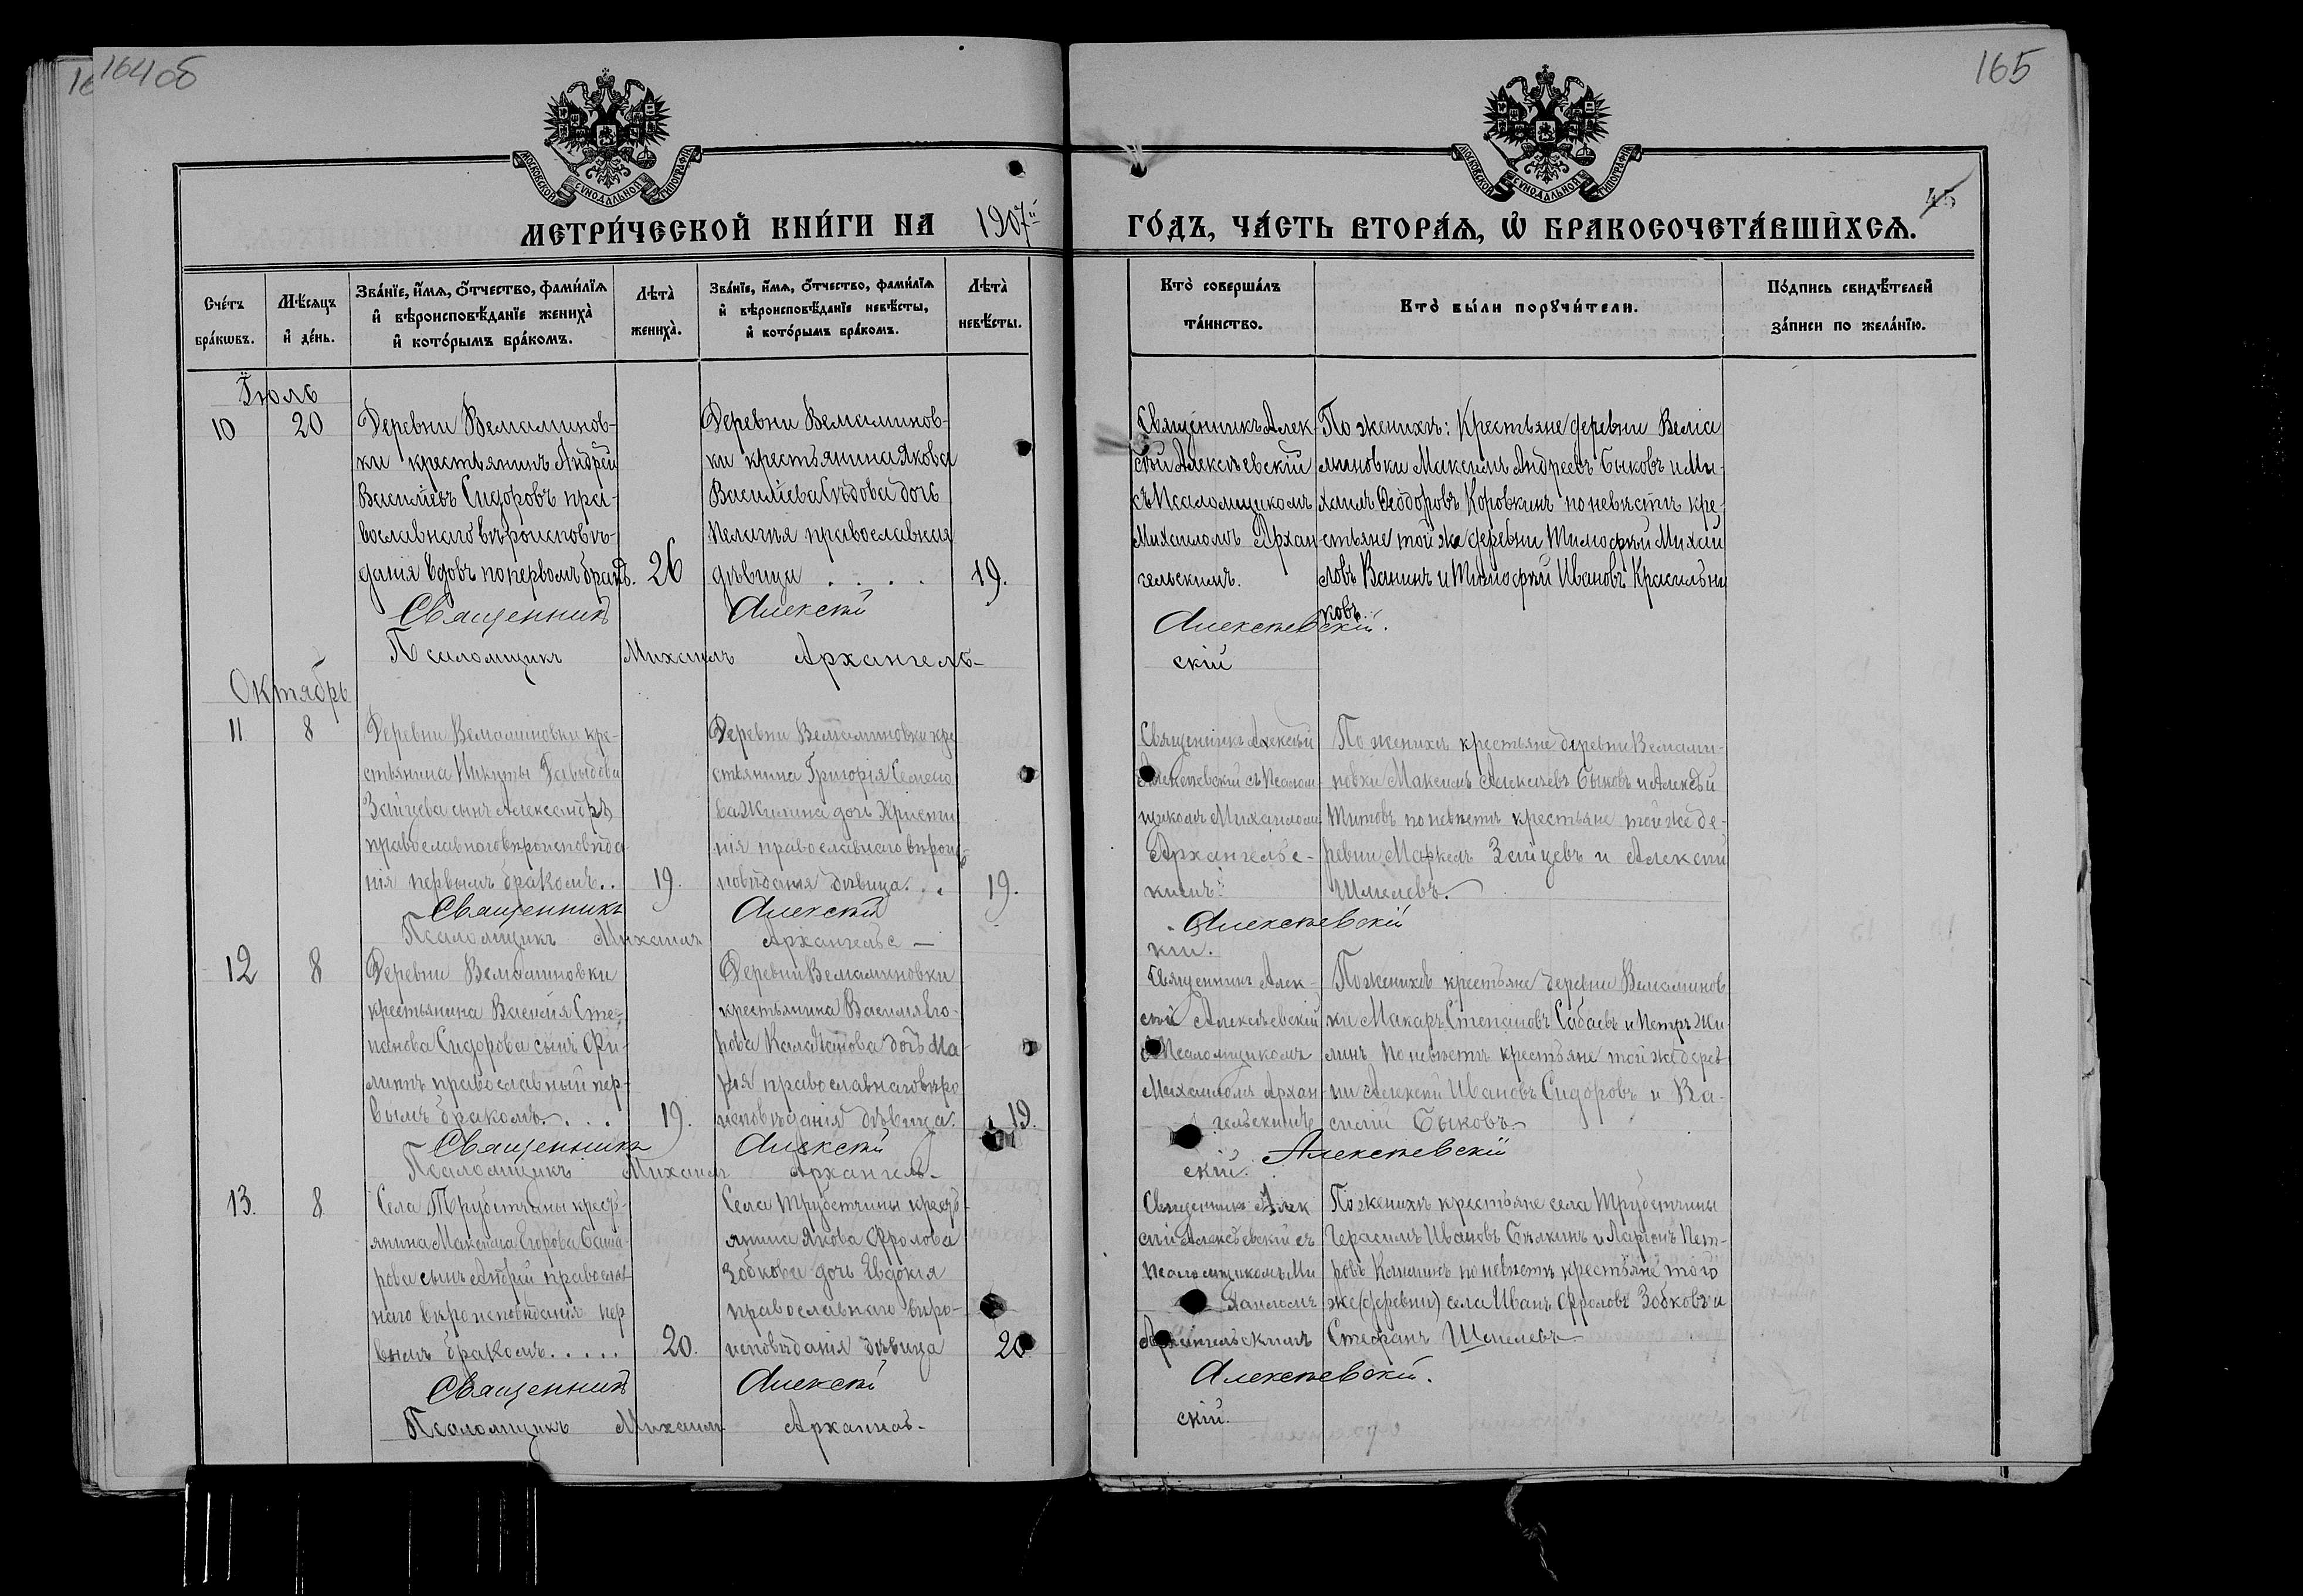 164об
165
МОСКОВСКОЙ СѴНОДАЛЬНОЙ ТИПОГРАФІИ
МОСКОВСКОЙ СѴНОДАЛЬНОЙ ТИПОГРАФІИ
45
МЕТРИ́ЧЕСКОЙ КНИ́ГИ НА 1907й
ГО́ДЪ, ЧА́СТЬ ВТОРА́Ѧ, Ѡ҆ БРАКОСОЧЕТА́ВШИХСѦ.
Счетъ бра́кѡвъ.
Мѣсяцъ и҆ де́нь.
Зва́нїе, и҆́мѧ, ѻ҆́тчество, фами́лїѧ
и҆ вѣроисповѣ́данїе жениха̀
и҆ кото́рымъ бра́комъ.
Лѣта̀ жениха̀.
Зва́нїе, и҆́мѧ, ѻ҆́тчество, фами́лїѧ
и҆ вѣроисповѣ́данїе невѣ́сты,
и҆ кото́рымъ бра́комъ.
Лѣта̀ невѣ́сты.
Кто̀ соверша́лъ та́инство.
Кто̀ бы́ли порꙋчи́тели.
По́дпись свидѣ́телей
за́писи по жела́нїю.
Іюль
10
20
Деревни Вельяминов-
ки крестьянинъ Андрей
Васильевъ Сидоровъ пра-
вославнаго вѣроисповѣ-
данія вдовъ по первомъ бракѣ.
26
Деревни Вельяминов-
ки крестьянина Якова
Васильева Сѣдова дочь
Пелагія православная
дѣвица . . . .
19.
Священникъ Алек-
сѣй Алексѣевскій
съ Псаломщикомъ
Михаиломъ Архан-
гельскимъ.
По женихѣ: Крестьяне деревни Велья
миновки Максимъ Андреевъ Быковъ и Ми-
хаилъ Ѳеодоровъ Коровкинъ по невѣстѣ кре-
стьяне той же деревни Тимофей Михай
ловъ Ванинъ и Тимофей Ивановъ Красильни
ковъ.
Священникъ Алексѣй Алексѣевскій.
Псаломщикъ Михаилъ Архангель-
скій
Октябрь
11
8
Деревни Вельяминовки кре-
стьянина Никиты Давыдова
Зайцева сынъ Александръ
православнаго вѣроисповѣда
нія первымъ бракомъ..
19.
Деревни Вельяминовки кре
стьянина Григорія Семено
ва Жилина дочь Христи
нія православнаго вѣроис-
повѣданія дѣвица...
19.
Священникъ Алексѣй
Алексѣевскій съ Псалом-
щикомъ Михаиломъ
Архангельс-
кимъ.
По женихѣ крестьяне деревни Вельями-
новки Максимъ Алексѣевъ Быковъ и Алексѣй
Титовъ по невѣстѣ крестьяне той же де-
ревни Маркелъ Зайцевъ и Алексѣй
Шмелевъ.
Священникъ Алексѣй Алексѣевскій
Псаломщикъ Михаилъ Архангельс-
кій.
12
8
Деревни Вельяминовки
крестьянина Василія Сте-
панова Сидорова сынъ Фи-
липпъ православный пер-
вымъ бракомъ....
19.
Деревни Вельяминовки
крестьянина Василія Его-
рова дочь Ма-
рія православнаго вѣро
исповѣданія дѣвица.
19.
Священникъ Алек-
сѣй Алексѣевскій
съ Псаломщикомъ
Михаиломъ Архан-
гельскимъ
По женихѣ крестьяне деревни Вельяминов
ки Макаръ Степановъ Сабаевъ и Петръ Жи-
линъ По невѣстѣ крестьяне той же дерев
ни Алексѣй Ивановъ Сидоровъ и Ва-
силій Быковъ
Священникъ Алексѣй Алексѣевскій
Псаломщикъ Михаилъ Архангель-
скій.
13.
8
Села Трубетчины кресть-
янина Максима Егорова
сынъ Андрей православ
наго вѣроисповѣданія пер
вымъ бракомъ.....
20.
Села Трубетчины кресть-
янина Якова Фролова
Зобкова дочь Евдокія
православнаго вѣро-
исповѣданія дѣвица
20.
Священникъ Алек
сѣй Алексѣевскій съ
Псаломщикомъ Ми
хаиломъ
Архангельскимъ
По женихѣ крестьяне села Трубетчины
Герасимъ Ивановъ Бѣлкинъ и Ларіонъ Пет-
ровъ по невѣстѣ крестьяне того
же (деревни) села Иванъ Фроловъ Зобковъ и
Стефанъ Шепелевъ
Священникъ Алексѣй Алексѣевскій.
Псаломщикъ Михаилъ
скій.